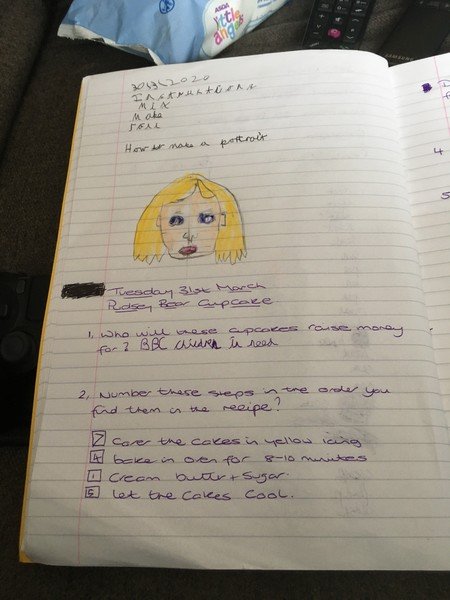 ASDA
little
angels
SAMSUNG
30/3\2020
Instructions
Mix
Make
Sell
How to make a portrait
Tuesday 31st March
Pudsey Bear Cupcake
1. Who will these cupcakes raise money
for? BBC children in need
2, Number these steps in the order you
find them in the recipe?
7 Cover the cakes in yellow icing
4 bake in oven for 8-10 minutes
1 Cream butter + Sugar.
5 let the Cakes Cool.
4
5